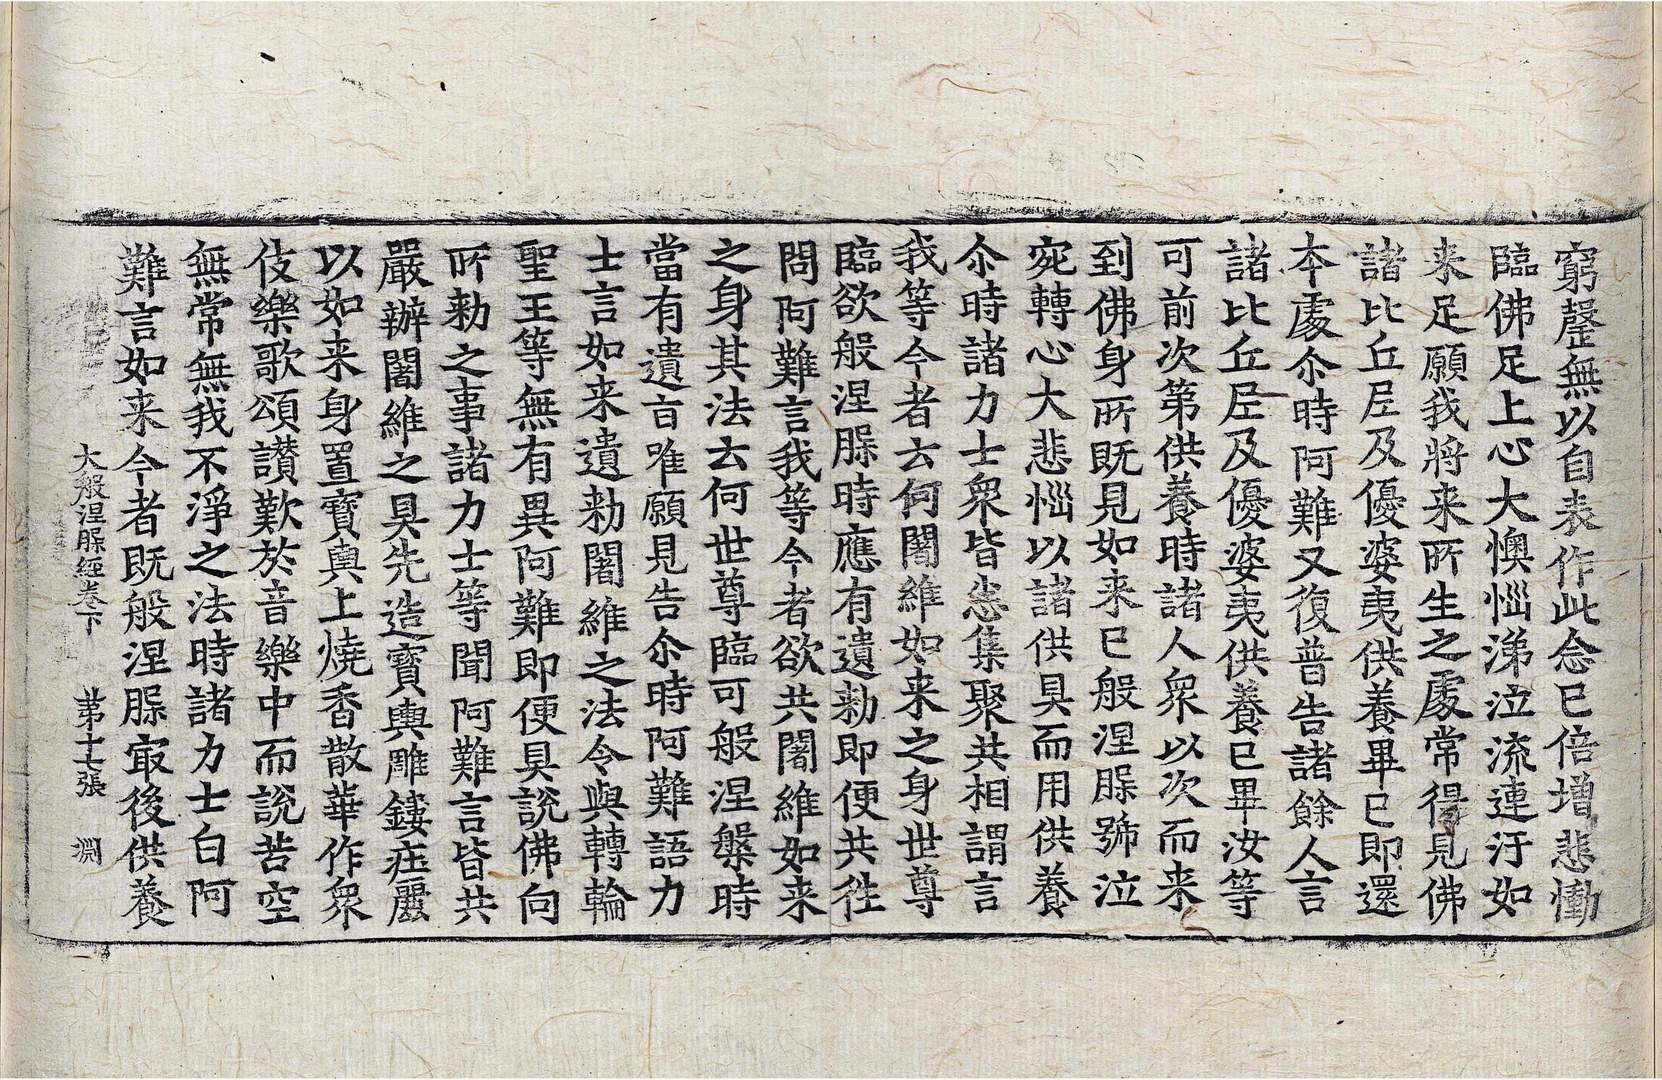 窮罄無以自表作此念已倍增悲慟
臨佛足上心大懊惱涕泣流連汙如
来足願我將来所生之處常得見佛
諸比丘尼及優婆夷供養畢已即還
本處尒時阿難又復普告諸餘人言
諸比丘尼及優婆夷供養已畢汝等
可前次第供養時諸人衆以次而来
到佛身所既見如来已般涅槃號泣
宛轉心大悲惱以諸供具而用供養
尒時諸力士衆皆悉集聚共相謂言
我等今者云何闍維如来之身世尊
臨欲般涅槃時應有遺勑即便共往
問阿難言我等今者欲共闍維如来
之身其法云何世尊臨可般涅槃時
當有遺言唯願見告尒時阿難語力
士言如来遺勑闍維之法令與轉輪
聖王等無有異阿難即便具說佛向
所勑之事諸力士等聞阿難言皆共
嚴辦闍維之具先造寶輿雕鏤莊嚴
以如来身置寶輿上燒香散華作衆
伎樂歌頌讃歎於音樂中而說苦空
無常無我不淨之法時諸力士白阿
難言如来今者既般涅槃㝡後供養
大般涅槃經卷下 第十七張 淵